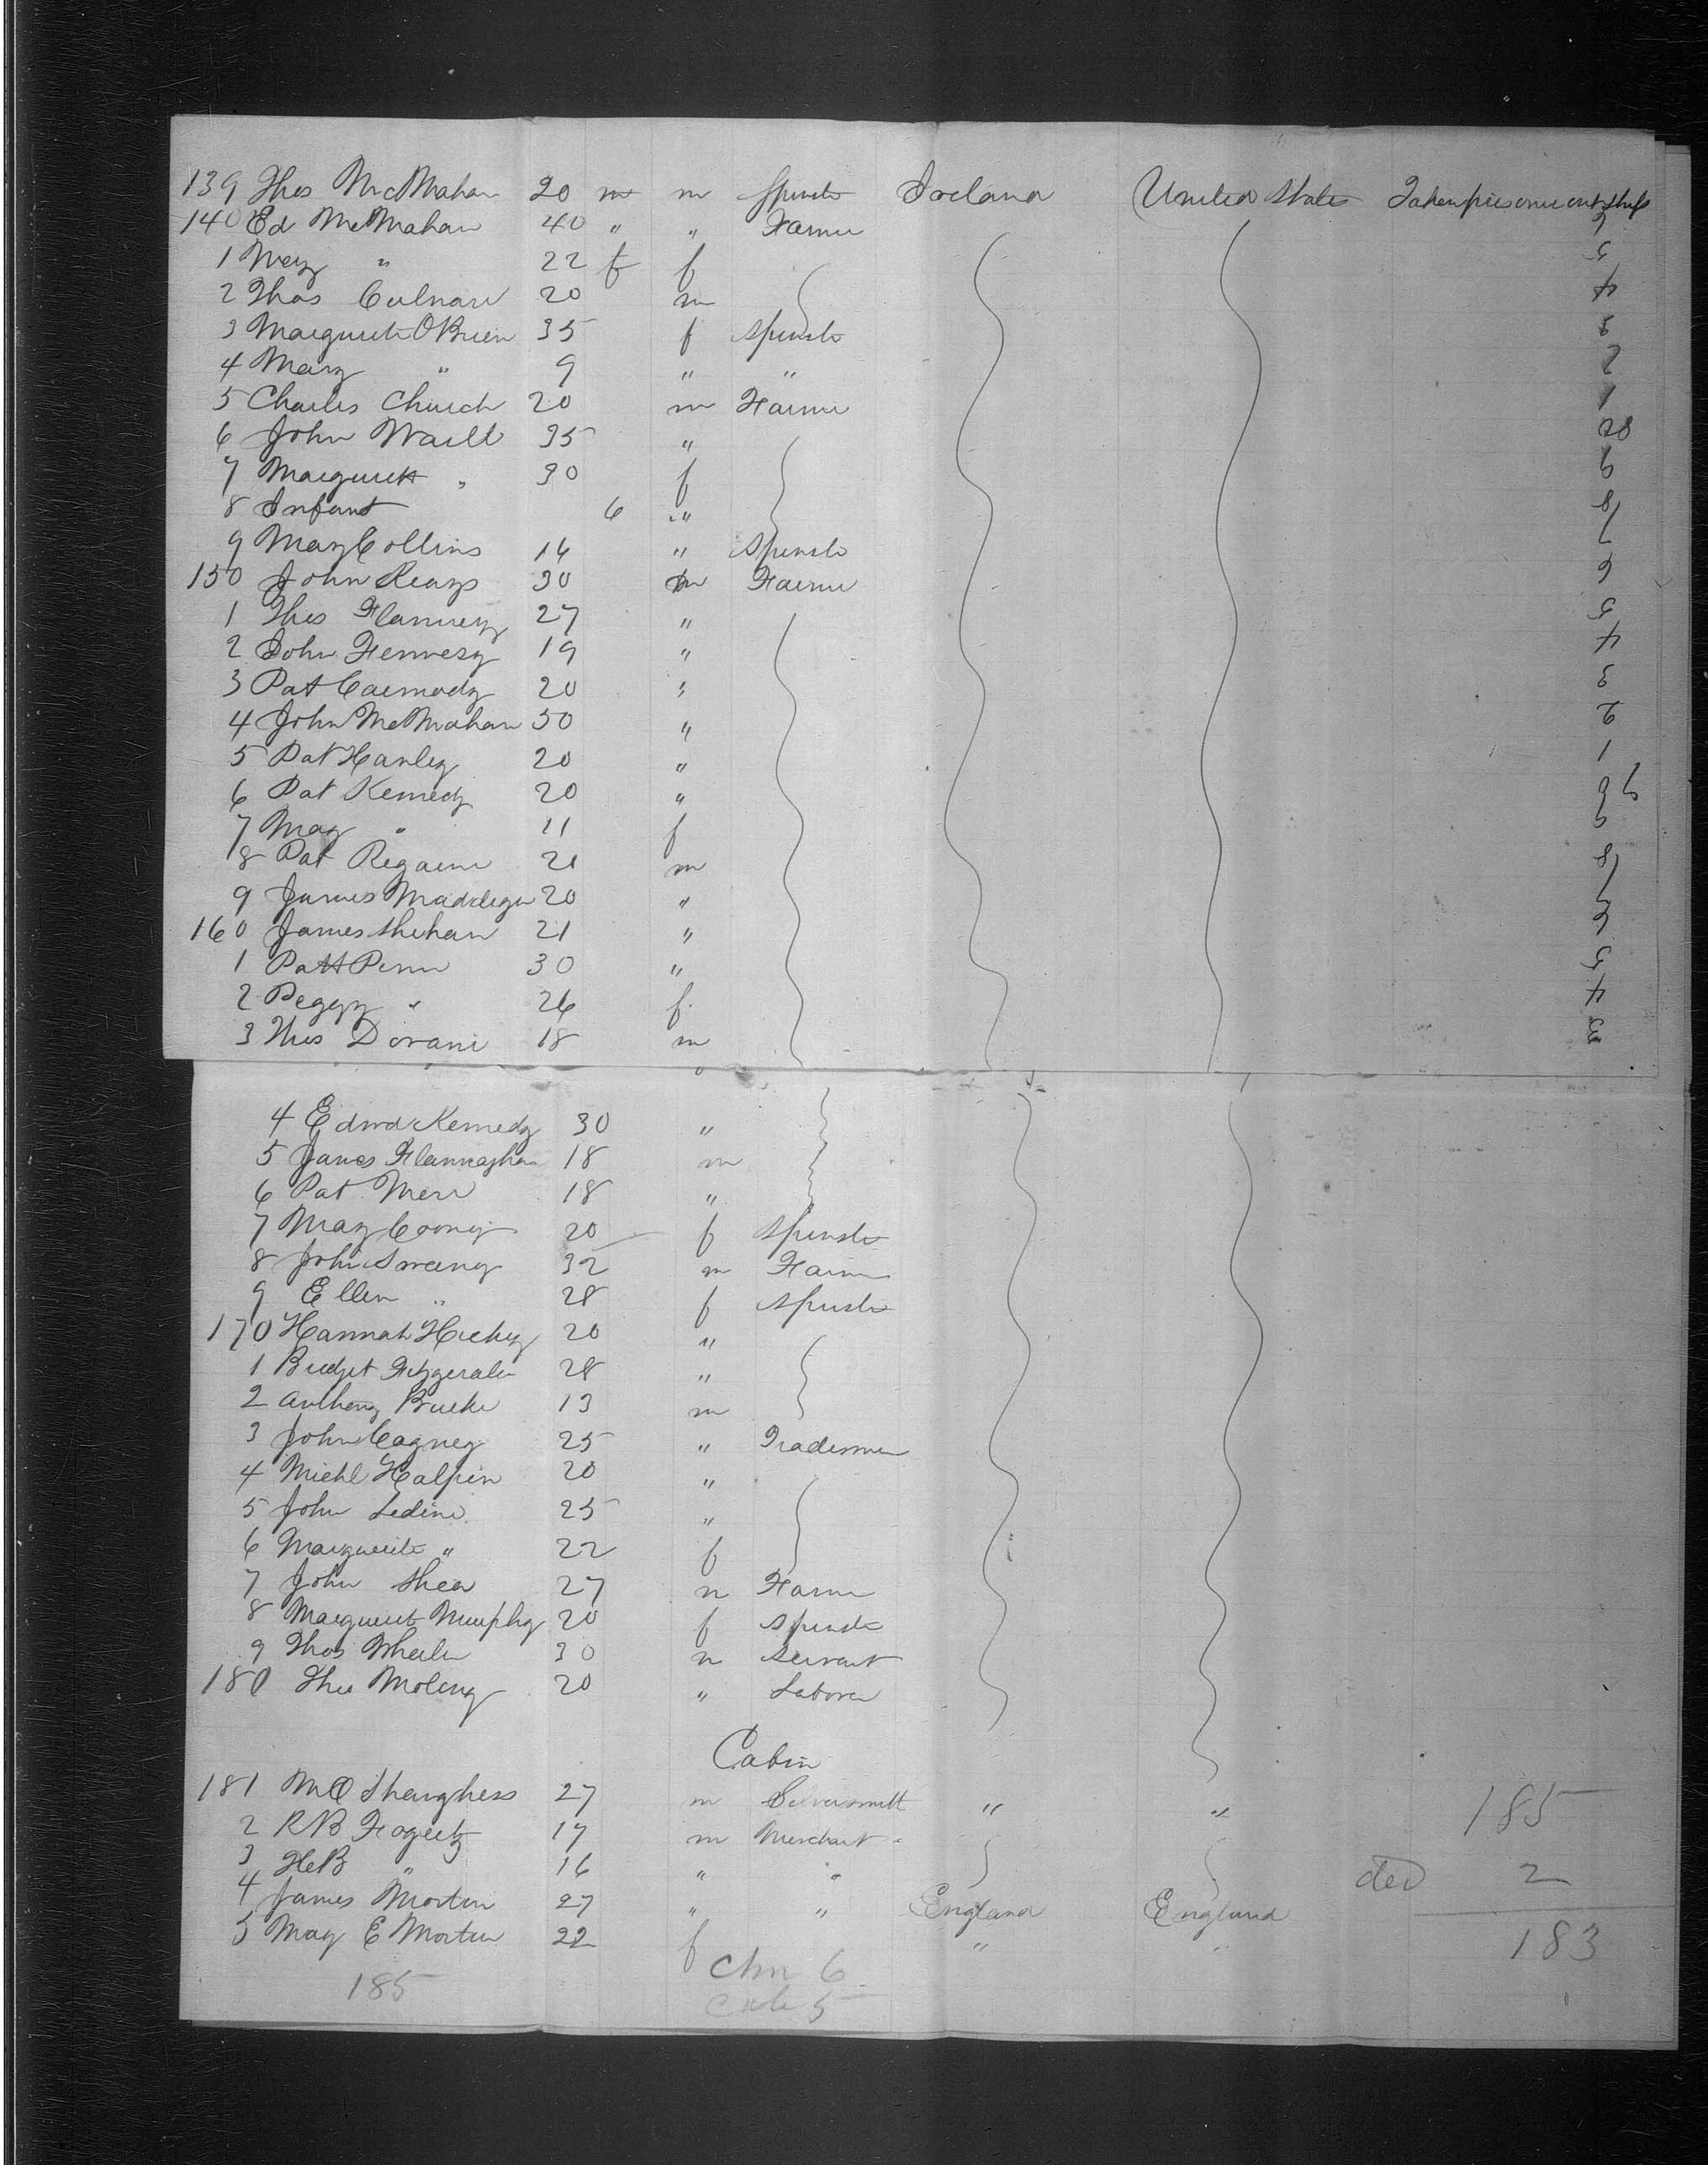 139 Thos McMahan 20 m m Spinste Ireland United States
140 Ed McMahan 40 " " Farmer
1 Mary " 22 f f
2 Thos Culnan 20 m
3 Marguerite OBrien 35 f Spinste
4 Mary " 9 " "
5 Charles Church 20 m Farmer
6 John Waill 35 "
7 Marguerit " 30 f
8 Infant 6 "
9 Mary Collins 14 " Spinste
150 John Reays 30 m Farmer
1 Thos Flannery 27 "
2 John Fennesy 19 "
3 Pat Carmody 20 "
4 John McMahan 50 "
5 Pat Hanley 20 "
6 Pat Kennedy 20 "
7 May " 11 f
8 Pat 21 m
9 James Maddigan 20 "
160 James Shehan 21 "
1 Patt Penn 30 "
2 Peggy " 26 f
3 Thos Dorani 18 m
4 Edwd Kennedy 30 "
5 James Flannaghan 18 m
6 Pat 18 "
7 May Cooney 20 f Spinste
8 John Sweeney 32 m Farm
9 Ellen " 28 f Spinste
170 Hannah Hickey 20 "
1 Bridget Fitzgerald 28 "
2 Anthony Burke 13 m
3 John Cagney 25 " Tradesman
4 Michl Halpin 20 "
5 John Ledine 25 "
6 Marguerite " 22 f
7 John Shea 27 m Farm
8 Marguerit Murphy 20 f Spinste
9 Thos Wheeler 30 m Servant
180 Thos Molony 20 " Laborer
Cabin
181 M O Shaughess 27 m Silversmith " "
2 R B Fogerty 17 m Merchant
3 H B " 16 " "
4 James Morton 27 " " England England
5 May E Morton 22 f " "
185
ded 2
183
185
Chn 6
Cab 5